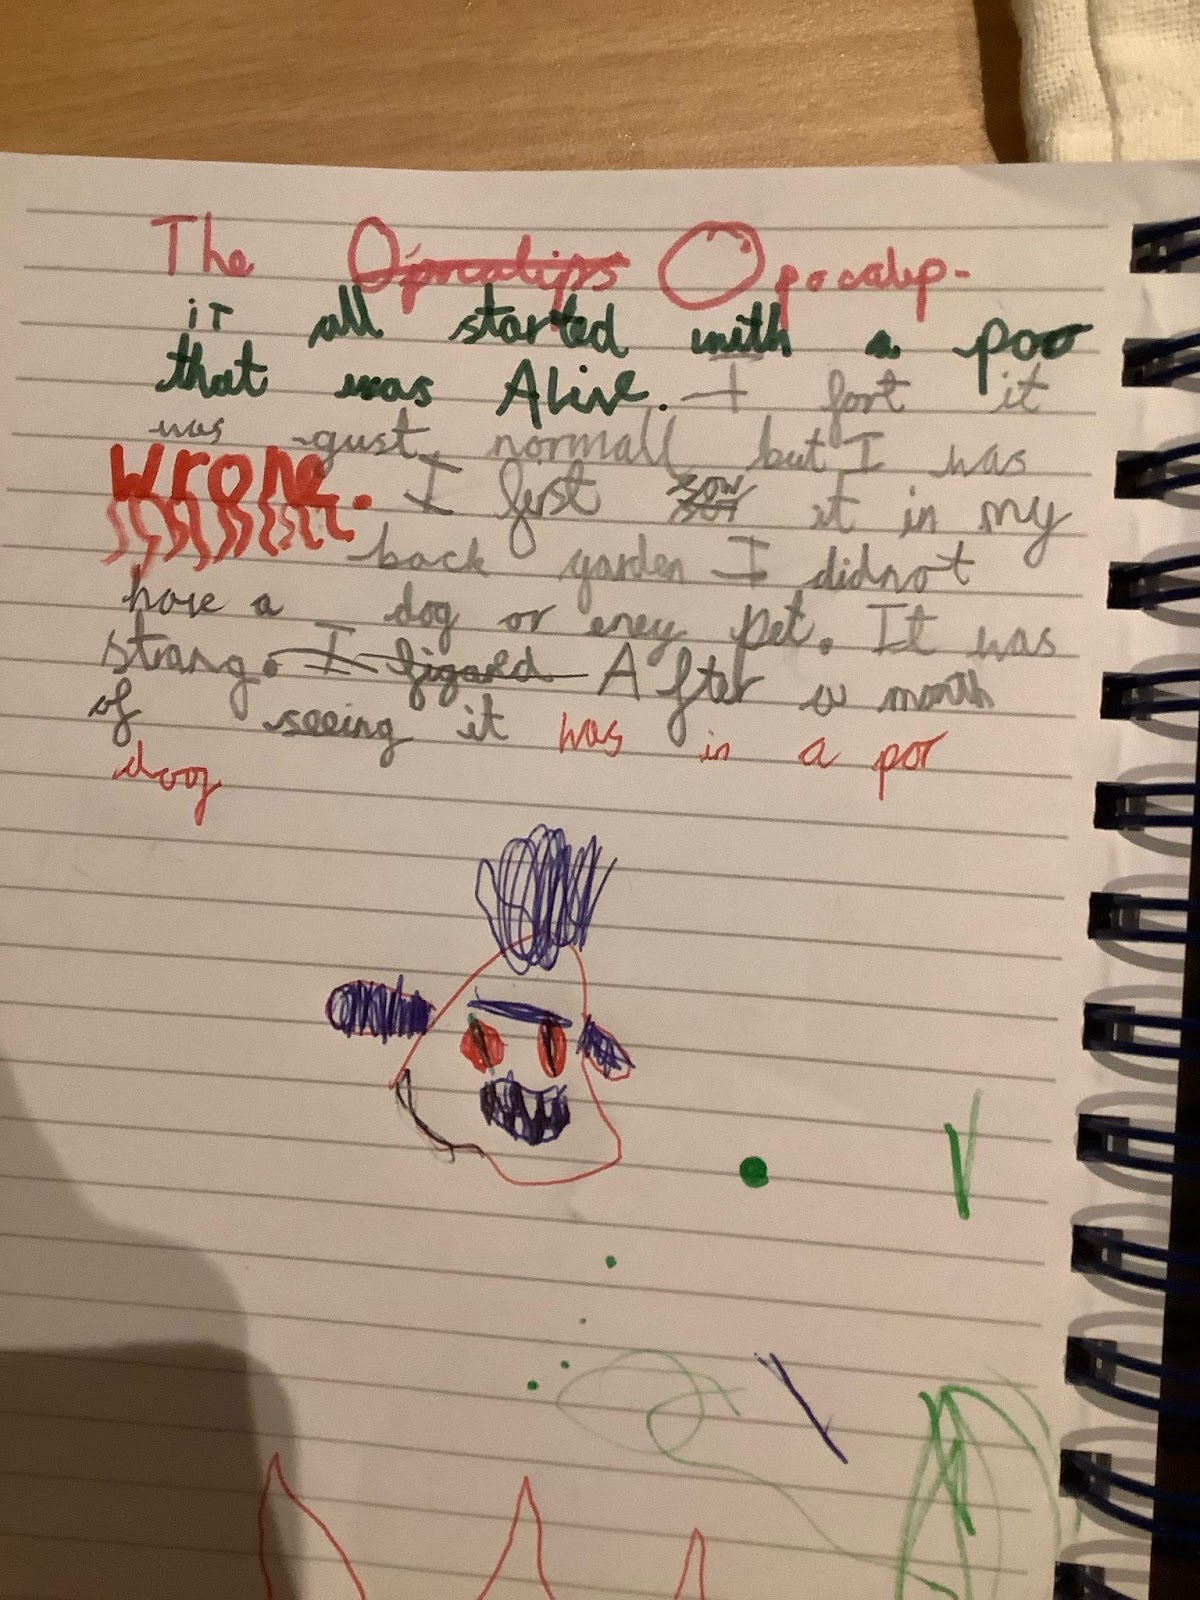 The Opocalips Opocalip-
it all started with a poo
that was Alive. I fort it
was gust normall but I was
wrone. I ferst sow it in my
back garden I didnot
have a dog or eney pet. It was
strang. I figared After a month
of seeing it was in a por
doog